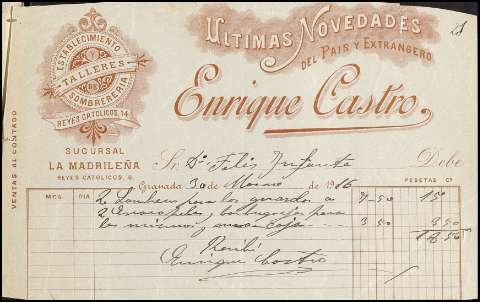 ULTIMAS NOVEDADES
DEL PAIS Y EXTRANGERO
ESTABLECIMIENTO
Y
TALLERES
DE
SOMBRERERIA
REYES CATOLICOS, 14
Enrique Castro.
SUCURSAL
LA MADRILEÑA
REYES CATOLICOS, 8.
VENTAS AL CONTADO
Sr. Dn Felix Infante Debe
Granada 30 de Marzo de 1916
MES DIA PESETAS CS
2 Sombreros para los guardas a 7-50 15
2 para
los mismos y una caja 3 50 3 50
18 50
Recibí
Enrique Castro